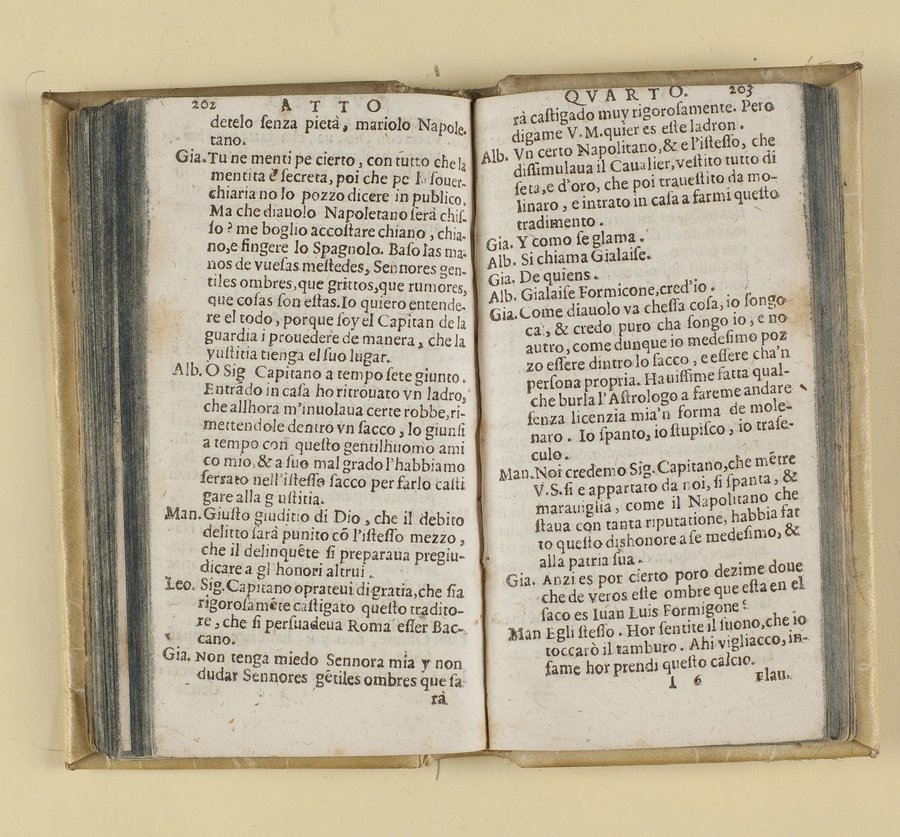 202 ATTO
detelo ſenza pietà, mariolo Napole-
tano.
Gia. Tu ne menti pe cierto, con tutto che la
mentita è ſecreta, poi che pe lo ſouer-
chiaria no lo pozzo dicere in publico.
Ma che diauolo Napoletano ſerà chiſ-
ſo? me boglio accoſtare chiano, chia-
no, e fingere lo Spagnolo. Baſo las ma-
nos de vueſas meſtedes, Sennores gen-
tiles ombres, que grittos, que rumores,
que coſas ſon eſtas. Io quiero entende-
re el todo, porque ſoy el Capitan de la
guardia i prouedere de manera, che la
yuſtitia tienga el ſuo lugar.
Alb. O Sig Capitano a tempo ſete giunto.
Entrãdo in caſa ho ritrouato vn ladro,
che allhora m'inuolaua certe robbe, ri-
mettendole dentro vn ſacco, lo giunſi
a tempo con queſto gentilhuomo ami
co mio, & a ſuo mal grado l'habbiamo
ſerrato nell'iſteſſo ſacco per farlo caſti
gare alla g uſtitia.
Man. Giuſto giuditio di Dio, che il debito
delitto ſarà punito cõ l'iſteſſo mezzo,
che il delinquẽte ſi preparaua pregiu-
dicare a gl honori altrui.
Leo. Sig. Capitano oprateui di gratia, che ſia
rigoroſamẽte caſtigato queſto tradito-
re, che ſi perſuadeua Roma eſſer Bac-
cano.
Gia. Non tenga miedo Sennora mia y non
dudar Sennores gẽtiles ombres que ſa
rà
QVARTO. 203
rà caſtigado muy rigoroſamente. Pero
digame V. M. quier es eſte ladron.
Alb. Vn certo Napolitano, & e l'iſteſſo, che
diſſimulaua il Caualier, veſtito tutto di
ſeta, e d'oro, che poi traueſtito da mo-
linaro, e intrato in caſa a farmi queſto
tradimento.
Gia. Y como ſe glama.
Alb. Si chiama Gialaiſe.
Gia. De quiens.
Alb. Gialaiſe Formicone, cred'io.
Gia. Come diauolo va cheſſa coſa, io ſongo
ca, & credo puro cha ſongo io, e no
autro, come dunque io medeſimo poz
zo eſſere dintro lo ſacco, e eſſere cha'n
perſona propria. Hauiſſime fatta qual-
che burla l'Aſtrologo a fareme andare
ſenza licenzia mia'n forma de mole-
naro. Io ſpanto, io ſtupiſco, io traſe-
culo.
Man. Noi credemo Sig. Capitano, che mẽtre
V. S. ſi e appartato da noi, ſi ſpanta, &
marauiglia, come il Napolitano che
ſtaua con tanta riputatione, habbia fat
to queſto dishonore a ſe medeſimo, &
alla patria ſua.
Gia. Anzi es por cierto poro dezime doue
che de veros eſte ombre que eſta en el
ſaco es Iuan Luis Formigone?
Man Egli ſteſſo. Hor ſentite il ſuono, che io
toccarò il tamburo. Ahi vigliacco, in-
fame hor prendi queſto calcio.
I 6 Flau.